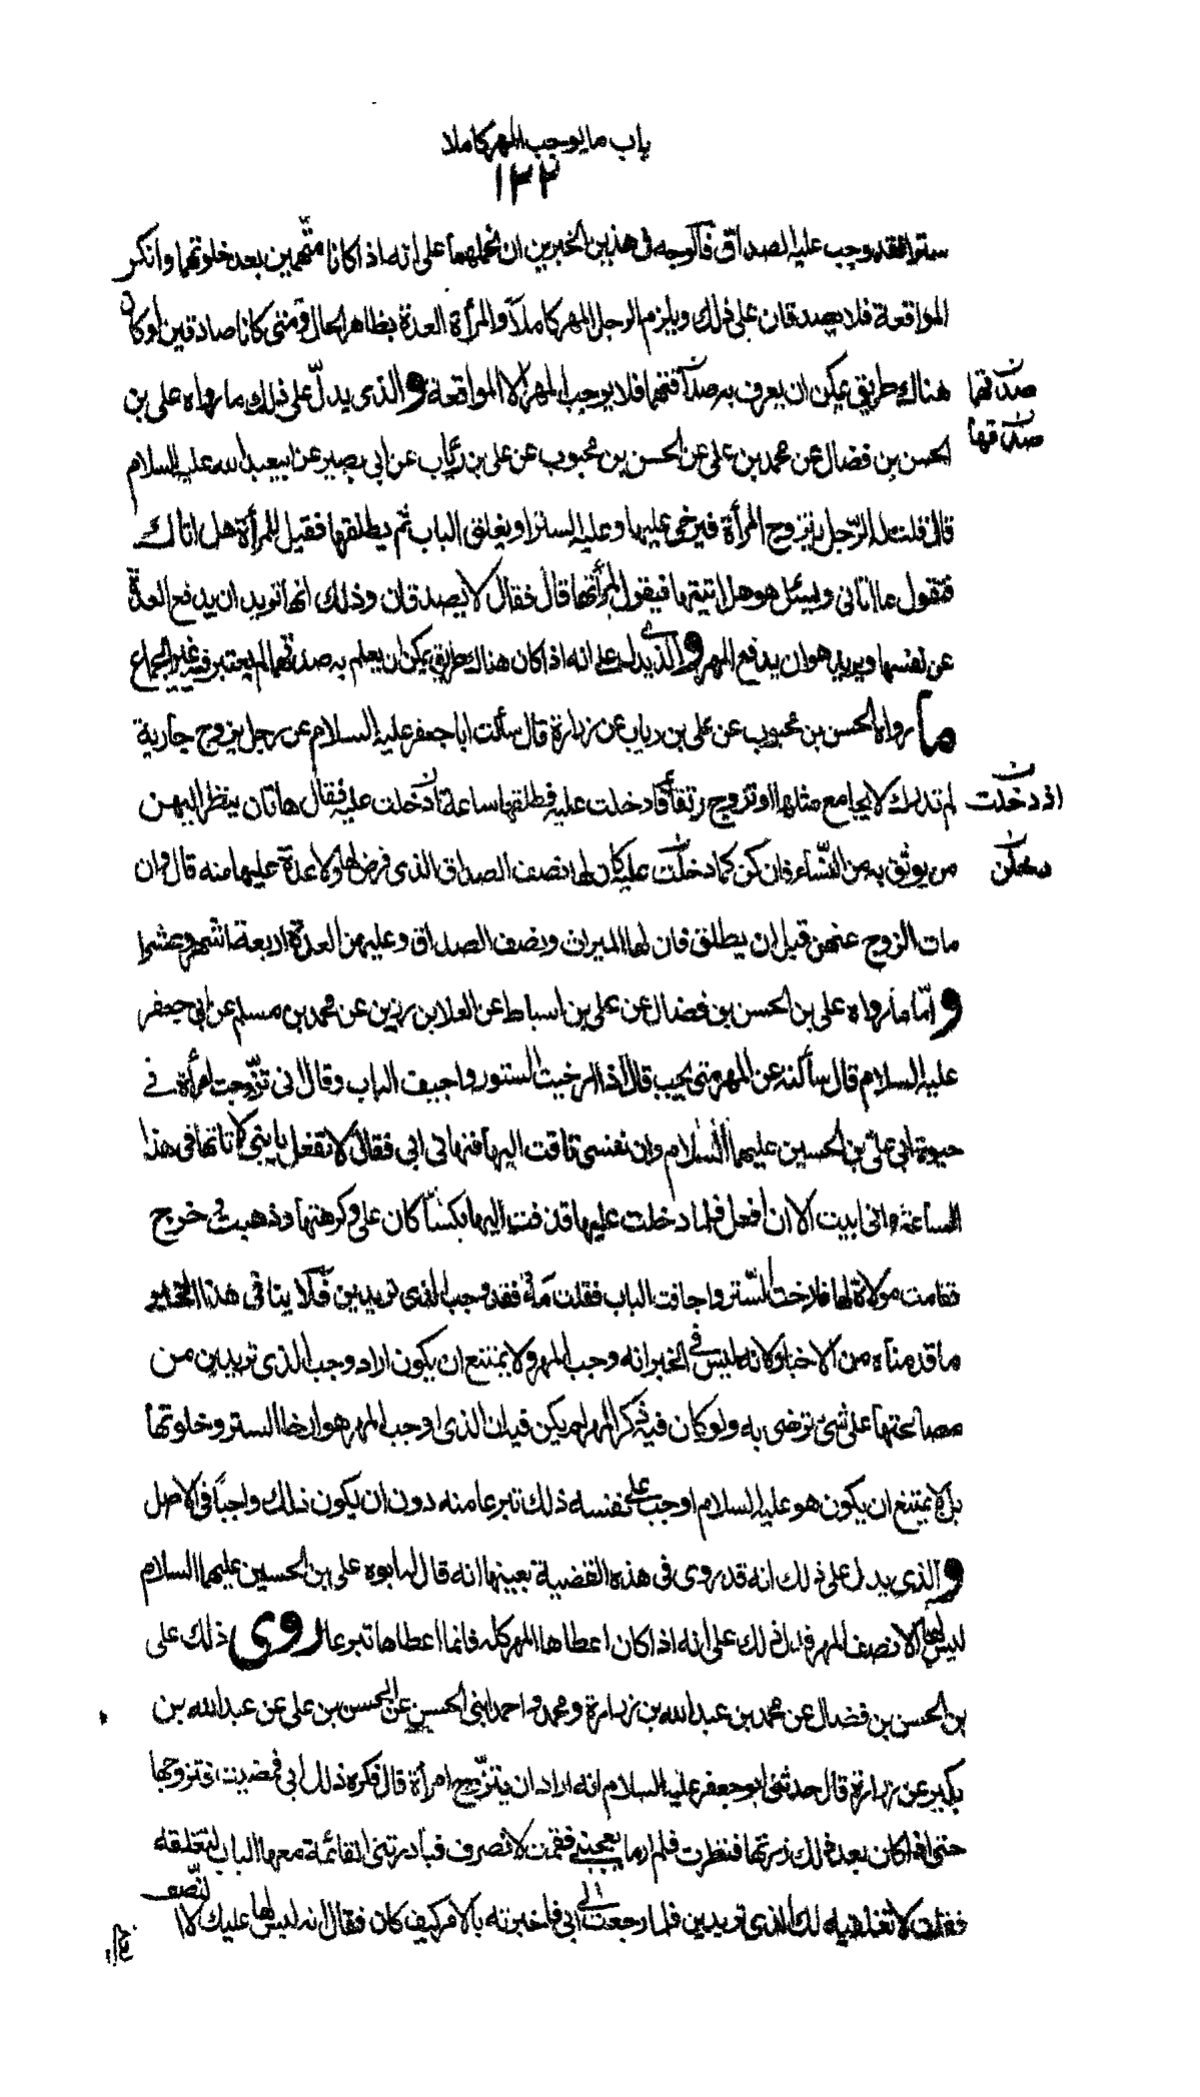 باب ما يوجب المهر كاملا
١٢٢
سترا فقد وجب عليه الصداق فالوجه فى هذين الخبرين ان نحملهما على انه اذا كانا متهمين بعد خلوتهما وانكر
المواقعة فلا يصدقان على ذلك ويلزم الرجل المهر كاملا والمرأة العدة بظاهر الحال ومتى كانا صادقين او كان
هناك طريق يمكن ان يعرف به صدقهما فلا يوجب المهر الا المواقعة والذى يدلّ على ذلك ما رواه على بن
صدقهما
صدقها
الحسن بن فضال عن محمد بن على عن الحسن بن محبوب عن على بن رئاب عن ابى بصير عن ابيعبد الله عليه السلام
قال قلت له الرّجل يتزوج المرأة فيرخى عليها وعليه الستر او يغلق الباب ثم يطلقها فقيل للمرأة هل اتاك
فتقول ما اتانى ويسئل هو هل اتيتها فيقول لم آتها قال فقال لا يصدقان وذلك انها تريد ان يدفع العدة
عن نفسها ويريد هو ان يدفع المهر والذى يدل على انه اذا كان هناك طريق يمكن ان يعلم به صدقهما لم يعتبر فيه غير الجماع
ما رواه الحسن بن محبوب عن على بن رياب عن زرارة قال سألت ابا جعفر عليه السلام عن رجل تزوج جارية
لم تدرك لا يجامع مثلها او تزوج رتقاء فادخلت عليه فطلقها ساعة ادخلت عليه فقال هاتان ينظر اليهن
اذ دخلت
من يوثق به من النّساء فان كن كما دخلت عليه كان لها نصف الصداق الذى فرض لها ولا عدة عليها منه قال وان
مات الزوج عنهن قبل ان يطلق فان لها الميراث ونصف الصداق وعليهن العدة اربعة اشهر وعشرا
وامّا ما رواه على بن الحسن بن فضال عن على بن اسباط عن العلا بن رزين عن محمد بن مسلم عن ابى جعفر
عليه السلام قال سألته عن المهر متى يجب قال اذا ارخيت الستور واجيف الباب وقال انى تزّوجت امرأة فى
حيوة ابى على بن الحسين عليهما السّلام وان نفسى تاقت اليها فنهانى ابى فقال لا تفعل يا بنى لا تاتها فى هذا
الساعة وانى ابيت الا ان افعل فلما دخلت عليها قذفت اليها بكساء كان على وكرهتها وذهبت لاخرج
فقامت مولاة لها فارخت السّتر واجافت الباب فقلت مه فقد وجب الذى تريدين فلا ينافى هذا الخبر
ما قدمناه من الاخبار لانه ليس فى الخبر انه وجب المهر ولا يمتنع ان يكون اراد وجب الذى تريدين من
مصالحتها على شئ ترضى به ولو كان فيه ذكر المهر لم يكن فيه ان الذى اوجب المهر هو ارخا الستر وخلوتها
بل لا يمتنع ان يكون هو عليه السلام اوجب على نفسه ذلك تبرعا منه دون ان يكون ذلك واجبًا فى الاصل
والذى يدل على ذلك انه قد روى فى هذه القضية بعينها انه قال له ابوه على بن الحسين عليهما السلام
ليس لها الا نصف المهر فدل ذلك على انه اذا كان اعطاها المهر كله فانما اعطاها تبرعا روى ذلك على
بن الحسن بن فضال عن محمد بن عبد الله بن زرارة ومحمد واحمد ابنى الحسن عن الحسن بن على عن عبد الله بن
بكير عن زرارة قال حدثنى ابو جعفر عليه السلام انه اراد ان يتزّوج امرأة قال فكره ذلك ابى فمضيت فتزوجها
حتى اذا كان بعد ذلك زرتها فنظرت فلم ار ما يعجبنى فقمت لانصرف فبادرتنى القائمة معها الباب لتغلقه
فقلت لا تغلقيه لك الذى تريدين فلما رجعت الى ابى فاخبرته بالامر كيف كان فقال انه ليس لها عليك الا
النّصف